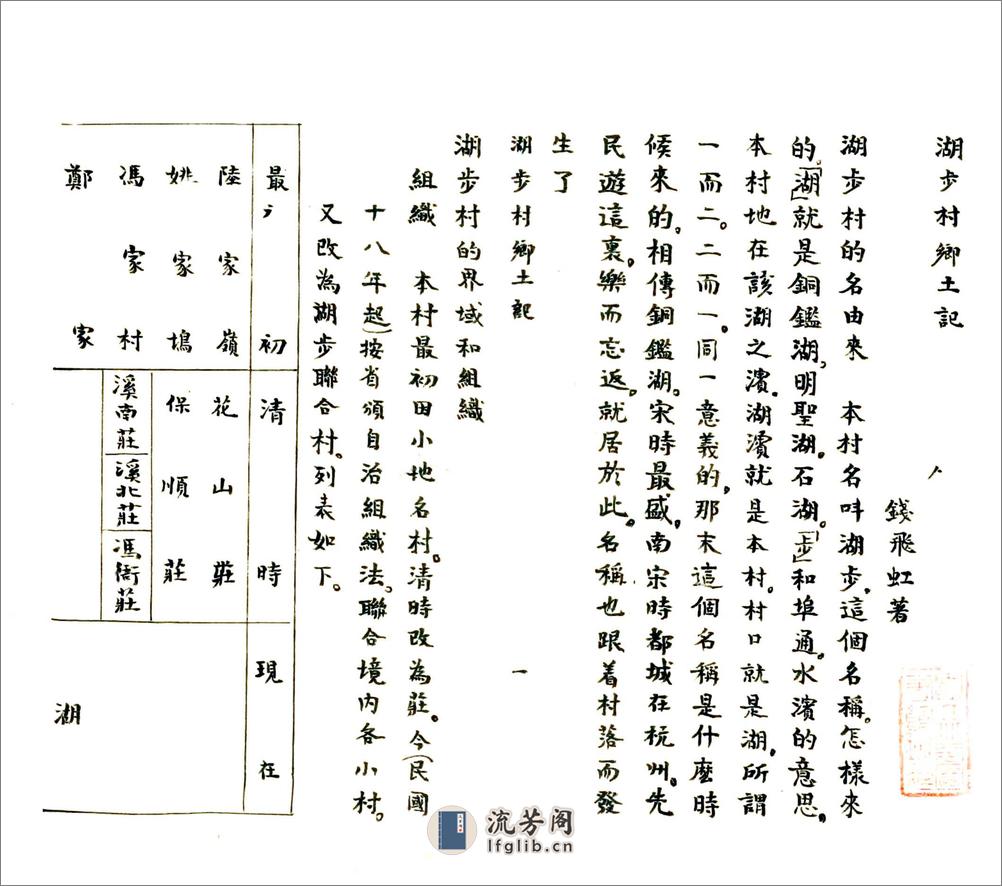 湖步村鄉土記
錢飛虹著
湖步村的名由來　本村名呌湖步，這個名稱。怎樣來
的，「湖」就是銅鑑湖，明聖湖。石湖。「步」和埠通，水濱的意思，
本村地在該湖之濱，湖濱就是本村。村口就是湖，所謂
一而二。二而一。同一意義的，那末這個名稱是什麽時
候來的。相傳銅鑑湖。宋時最盛，南宋時都城在杭州。先
民遊這裏，樂而忘返。就居於此。名稱也跟着村落而發
生了
湖步村鄉土記　一
湖步村的界域和組織
組織　本村最初田小地名村。清時改為莊。今（民國
十八年起）按省頒自治組織法。聯合境内各小村。
又改為湖步聯合村。列表如下。
最初　清時　現在
陸家嶺　花山莊
姚家塢　保順莊
馮家村　溪南莊　溪北莊　馮衙莊
鄭家　湖
流芳阁
lfglib.cn